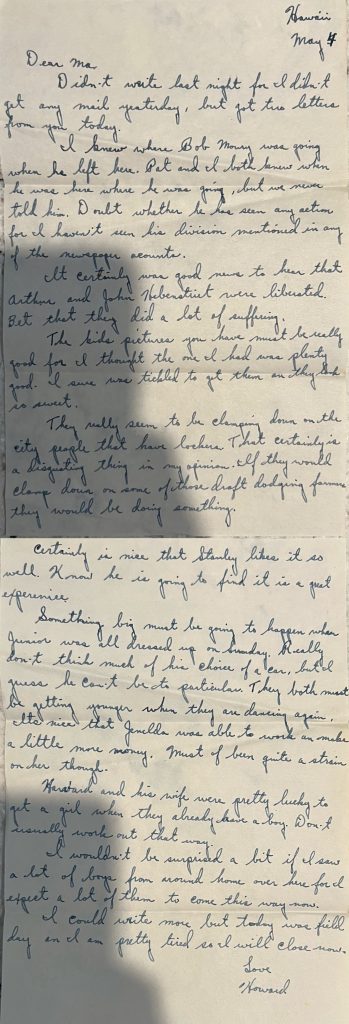 Hawaii
May 4
Dear Ma,
Didn't write last night for I didn't
get any mail yesterday, but got two letters
from you today.
I knew where Bob Moury was going
when he left here. Pat and I both knew when
he was here where he was going, but we never
told him. Doubt whether he has seen any action
for I haven't seen his division mentioned in any
of the newspaper acounts.
It certainly was good news to hear that
Arthur and John Hebenstriet were liberated.
Bet that they did a lot of suffering.
The kids pictures you have must be really
good for I thought the one I had was plenty
good. I sure was tickled to get them an they look
so sweet.
They really seem to be clamping down on the
city people that have lockers. That certainly is
a disgusting thing in my opinion. If they would
clamp down on some of those draft dodging farmers
they would be doing something.
Certainly is nice that Stanley likes it so
well. Know he is going to find it is a great
expereince.
Something big must be going to happen when
Junior was all dressed up on Sunday. Really
don't think much of his choice of a car, but I
guess he can't be to particular. They both must
be getting younger when they are dancing again.
Its nice that was able to work an make
a little more money. Must of been quite a strain
on her though.
and his wife were pretty lucky to
get a girl when they already have a boy. Don't
usually work out that way.
I wouldn't be surprised a bit if I saw
a lot of boys from around home over here for I
expect a lot of them to come this way now.
I could write more but today was field
day an I am pretty tired so I will close now.
Love
Howard